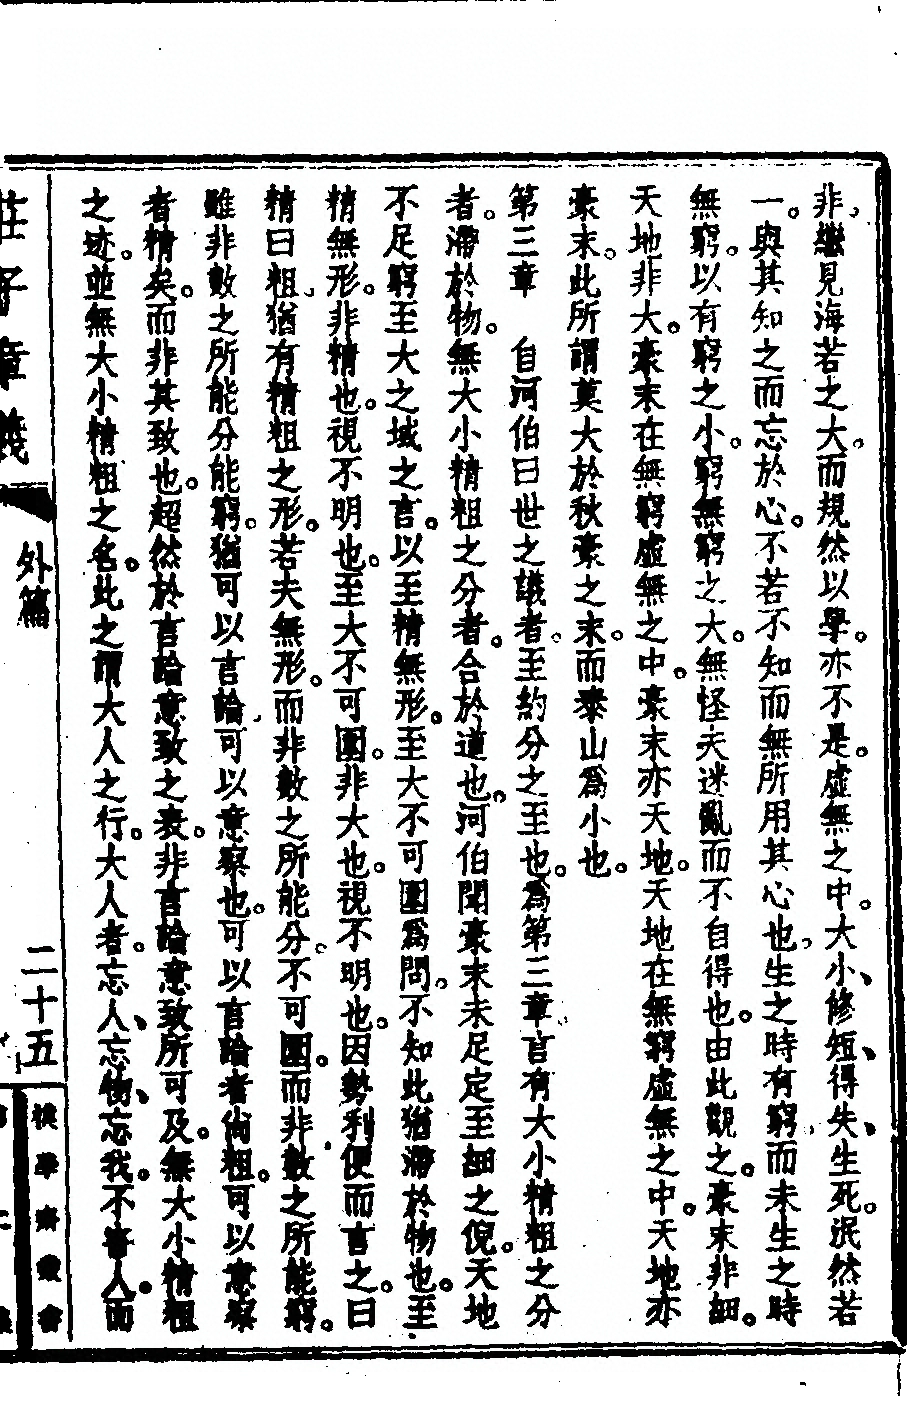 非、繼見海若之大、而規然以學。亦不是。虛無之中。大小、修短、得失、生死。泯然若
一。與其知之而忘於心。不若不知而無所用其心也、生之時有窮、而未生之時
無窮。以有窮之小。窮無窮之大。無怪夫迷亂而不自得也。由此觀之。豪末非細。
天地非大。豪末在無窮虛無之中。豪末亦天地。天地在無窮虛無之中。天地亦
豪末。此所謂莫大於秋豪之末。而泰山爲小也。
第三章　自河伯曰世之議者。至約分之至也。爲第三章、言有大小精粗之分
者。滯於物。無大小精粗之分者。合於道也。河伯聞豪末未足定至細之倪。天地
不足窮至大之域之言。以至精無形。至大不可圍爲問。不知此猶滯於物也。至
精無形。非精也。視不明也。至大不可圍。非大也。視不明也。因勢利便而言之。曰
精曰粗、猶有精粗之形。若夫無形。而非數之所能分。不可圍。而非數之所能窮。
雖非數之所能分能窮。猶可以言論、可以意察也。可以言論者尙粗。可以意察
者精矣。而非其致也。超然於言論意致之表。非言論意致所可及。無大小精粗
之迹。並無大小精粗之名。此之謂大人之行。大人者。忘人、忘物、忘我。不害人。而
莊子章義
外篇
二十五
樸學齋叢書